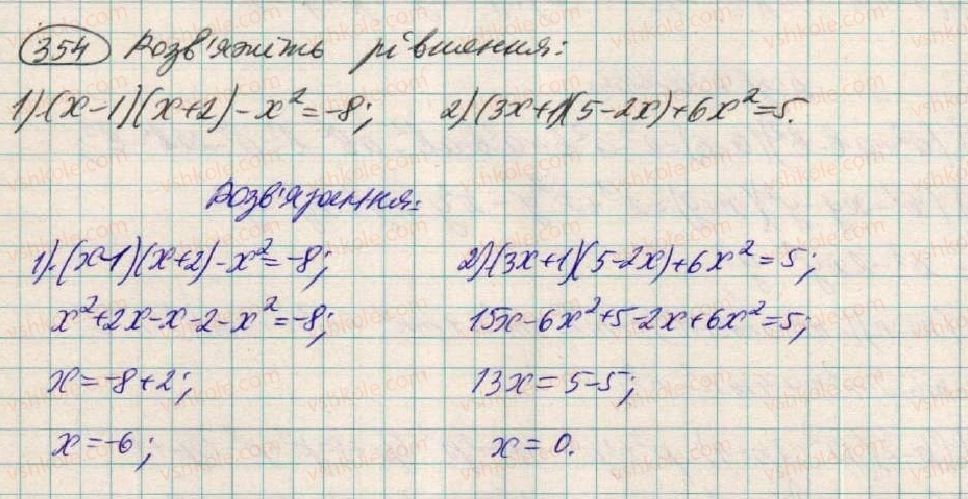 354 Розв'яжіть рівняння:
1) (x-1)(x+2)-x²=-8; 2) (3x+1)(5-2x)+6x²=5.
Розв'язання:
1) (x-1)(x+2)-x²=-8; 2) (3x+1)(5-2x)+6x²=5;
x²+2x-x-2-x²=-8; 15x-6x²+5-2x+6x²=5;
x=-8+2; 13x=5-5;
x=-6; x=0.